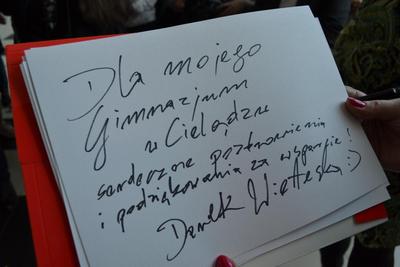 Dla mojego
Gimnazjum
w Cielądzu
serdeczne pozdrowienia
i podziękowania za wsparcie! :)
Darek